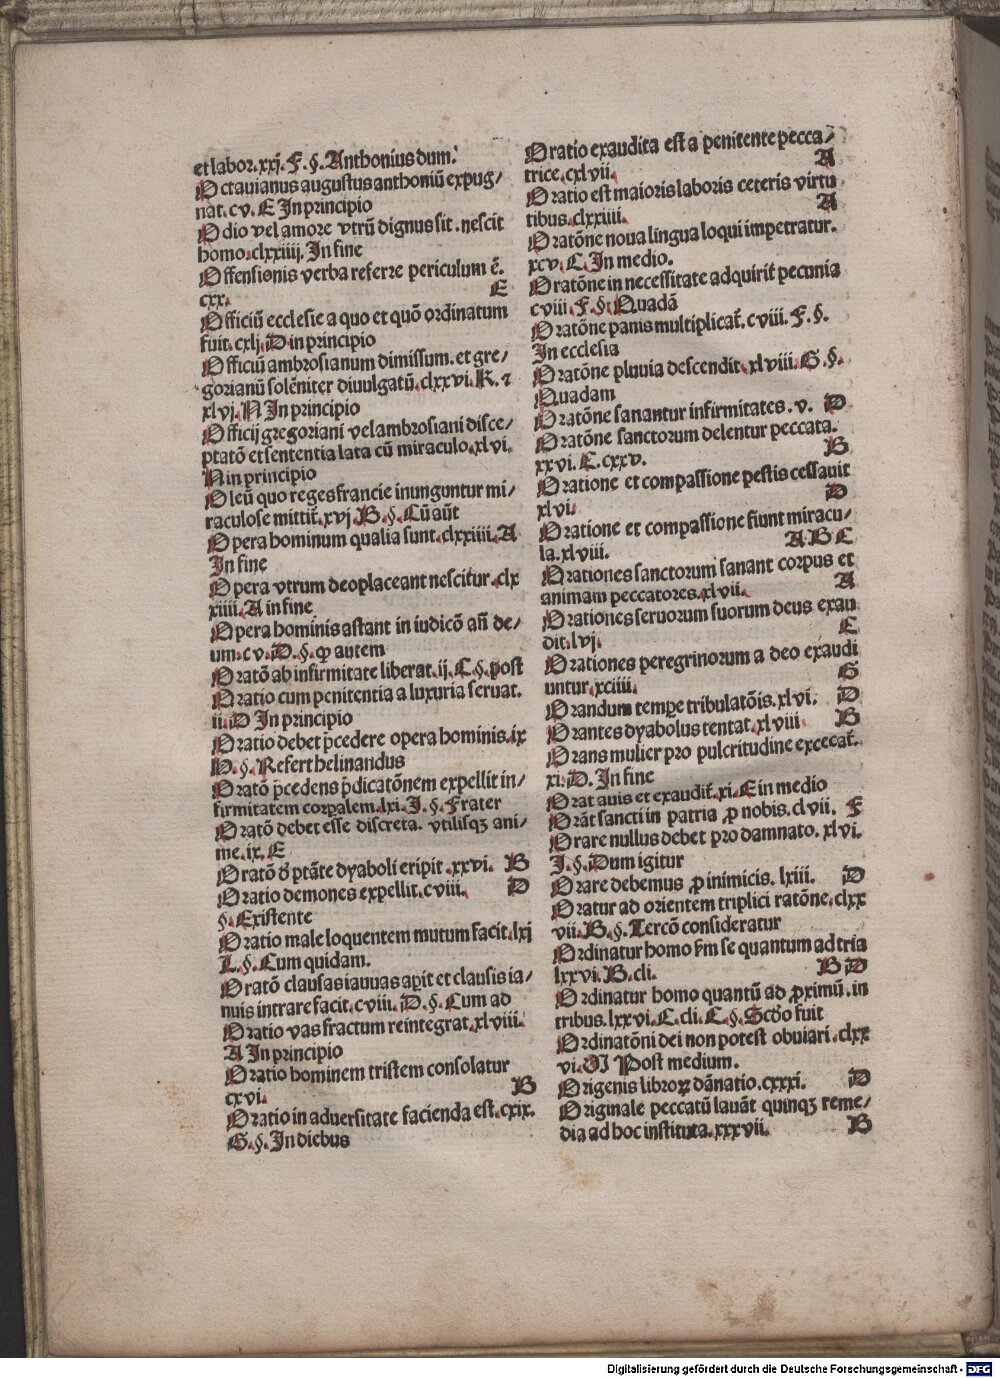 et labor.xxj.F.§.Anthonius dum.
Octauianus augustus anthoniū expug/
nat.cv.E In principio
Odio vel amore vtrū dignus sit.nescit
homo.clxxiiij.In fine
Offensionis verba referre periculum ē.
cxx. E
Officiū ecclesie a quo et quō ordinatum
fuit.cxlj.D in principio
Officiū ambrosianum dimissum.et gre/
gorianū solēniter diuulgatū.clxxvi.K.⁊
xlvj.N In principio
Officij gregoriani vel ambrosiani disce/
ptatō et sententia lata cū miraculo.xlvi.
N in principio
Oleū quo reges francie inunguntur mi/
raculose mittit̄.xvj.B.§.Cū aūt
Opera hominum qualia sunt.clxxiiii.A
In fine
Opera vtrum deo placeant nescitur.clx
xiiii.A in fine
Opera hominis astant in iudicō añ de/
um.cv.D.§.ꝙ autem
Oratō ab infirmitate liberat.ij.C§.post
Oratio cum penitentia a luxuria seruat.
ii.D In principio
Oratio debet p̄cedere opera hominis.ix
H.§.Refert helinandus
Oratō p̄cedens p̄dicatōnem expellit in/
firmitatem corꝑalem.lxi.I.§.Frater
Oratō debet esse discreta. vtilisqꝫ ani/
me.ix.E
Oratō d' ptāte dyaboli eripit.xxvi. B
Oratio demones expellit.cviii. D
§.Existente
Oratio male loquentem mutum facit.lxj
L.§.Cum quidam.
Oratō clausas iauuas aꝑit et clausis ia/
nuis intrare facit.cviii.D.§.Cum ad
Oratio vas fractum reintegrat.xlviii.
A In principio
Oratio hominem tristem consolatur
cxvi. B
Oratio in aduersitate facienda est.cxix.
G.§.In diebus
Oratio exaudita est a penitente pecca/
trice.cxlvii. A
Oratio est maioris laboris ceteris virtu
tibus.clxxiiii. A
Oratōne noua lingua loqui impetratur.
xcv.C.In medio.
Oratōne in necessitate adquirit̄ pecunia
cviii.F.§.Quadā
Oratōne panis multiplicat̄.cviii.F.§.
In ecclesia
Oratōne pluuia descendit.xlviii.G.§.
Quadam
Oratōne sanantur infirmitates.v. D
Oratōne sanctorum delentur peccata.
xxvi.C.cxxv. B
Oratione et compassione pestis cessauit
xlvi. D
Oratione et compassione fiunt miracu/
la.xlviii. A B C
Orationes sanctorum sanant corpus et
animam peccatores.xlvii. A
Orationes seruorum suorum deus exau
dit.lvj. E
Orationes peregrinorum a deo exaudi
untur.xciiii. G
Orandum tempe tribulatōis.xlvi. D
Orantes dyabolus tentat.xlviii B
Orans mulier pro pulcritudine excecat̄.
xi.D.In fine
Orat auis et exaudit̄.xi.E in medio
Orāt sancti in patria ꝓ nobis.clvii. F
Orare nullus debet pro damnato.xlvi.
I.§.Dum igitur
Orare debemus ꝓ inimicis.lxiii. D
Oratur ad orientem triplici ratōne.clxx
vii.B.§.Tercō consideratur
Ordinatur homo s̄m se quantum ad tria
lxxvi.B.cli. B D
Ordinatur homo quantū ad ꝓximū.in
tribus.lxxvi.C.cli.C.§.Scd'o fuit
Ordinatōni dei non potest obuiari.clxx
vi.M Post medium.
Origenis libroꝝ dānatio.cxxxi. D
Originale peccatū lauāt quinqꝫ reme/
dia ad hoc instituta.xxxvii. B
Digitalisierung gefördert durch die Deutsche Forschungsgemeinschaft - DFG